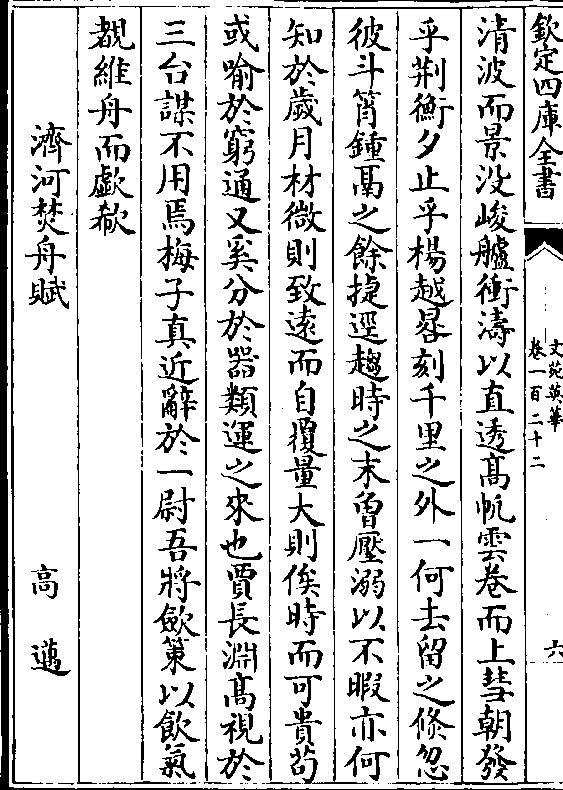 欽定四庫全書
文苑英華
卷一百二十二
六
清波而景没峻艫衝濤以直透髙帆雲卷而上彗朝發
乎荆衡夕止乎楊越晷刻千里之外一何去留之倏忽
彼斗筲鍾鬲之餘捷逕趨時之末曽壓溺以不暇亦何
知於歲月材微則致遠而自覆量大則俟時而可貴茍
或喻於窮通又奚分於器類運之來也賈長淵髙視於
三台謀不用焉梅子真近辭於一尉吾將斂策以飲氣
覩維舟而歔欷
濟河焚舟賦
高邁